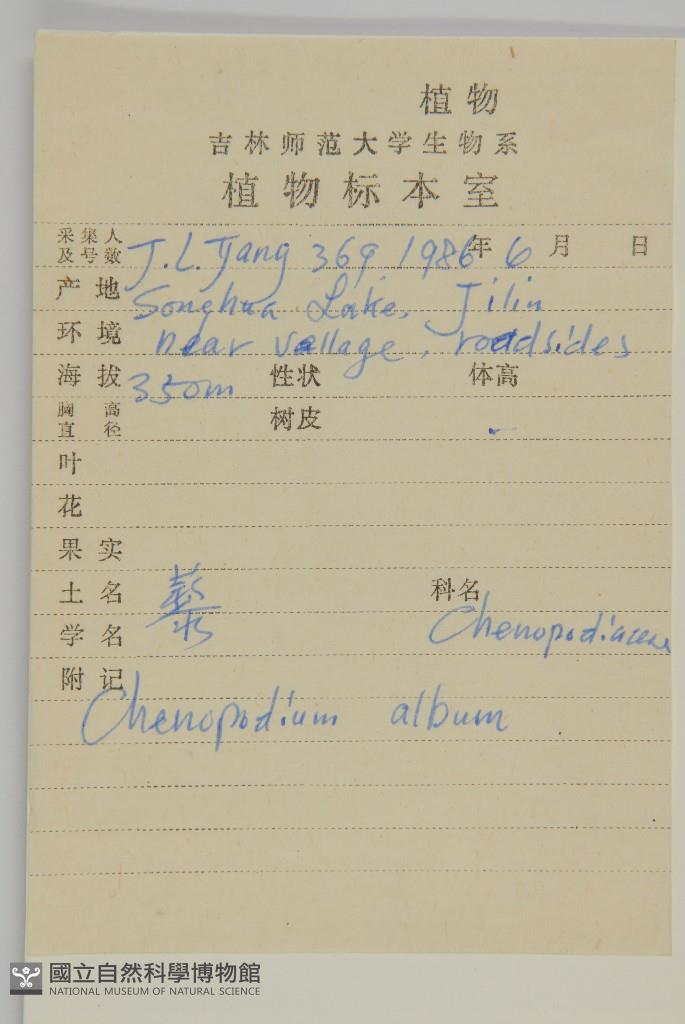 植物
吉林师范大学生物系
植物标本室
采集人及号数 J.L.Tjang 369 1986年 6月 日
产地 Songhua Lake, Jilin
环境 near vallage, roadsides
海拔 350m 性状 体高
胸高直径 树皮
叶
花
果实
土名 藜 科名
学名 Chenopodiaceae
附记
Chenopodium album
國立自然科學博物館
NATIONAL MUSEUM OF NATURAL SCIENCE